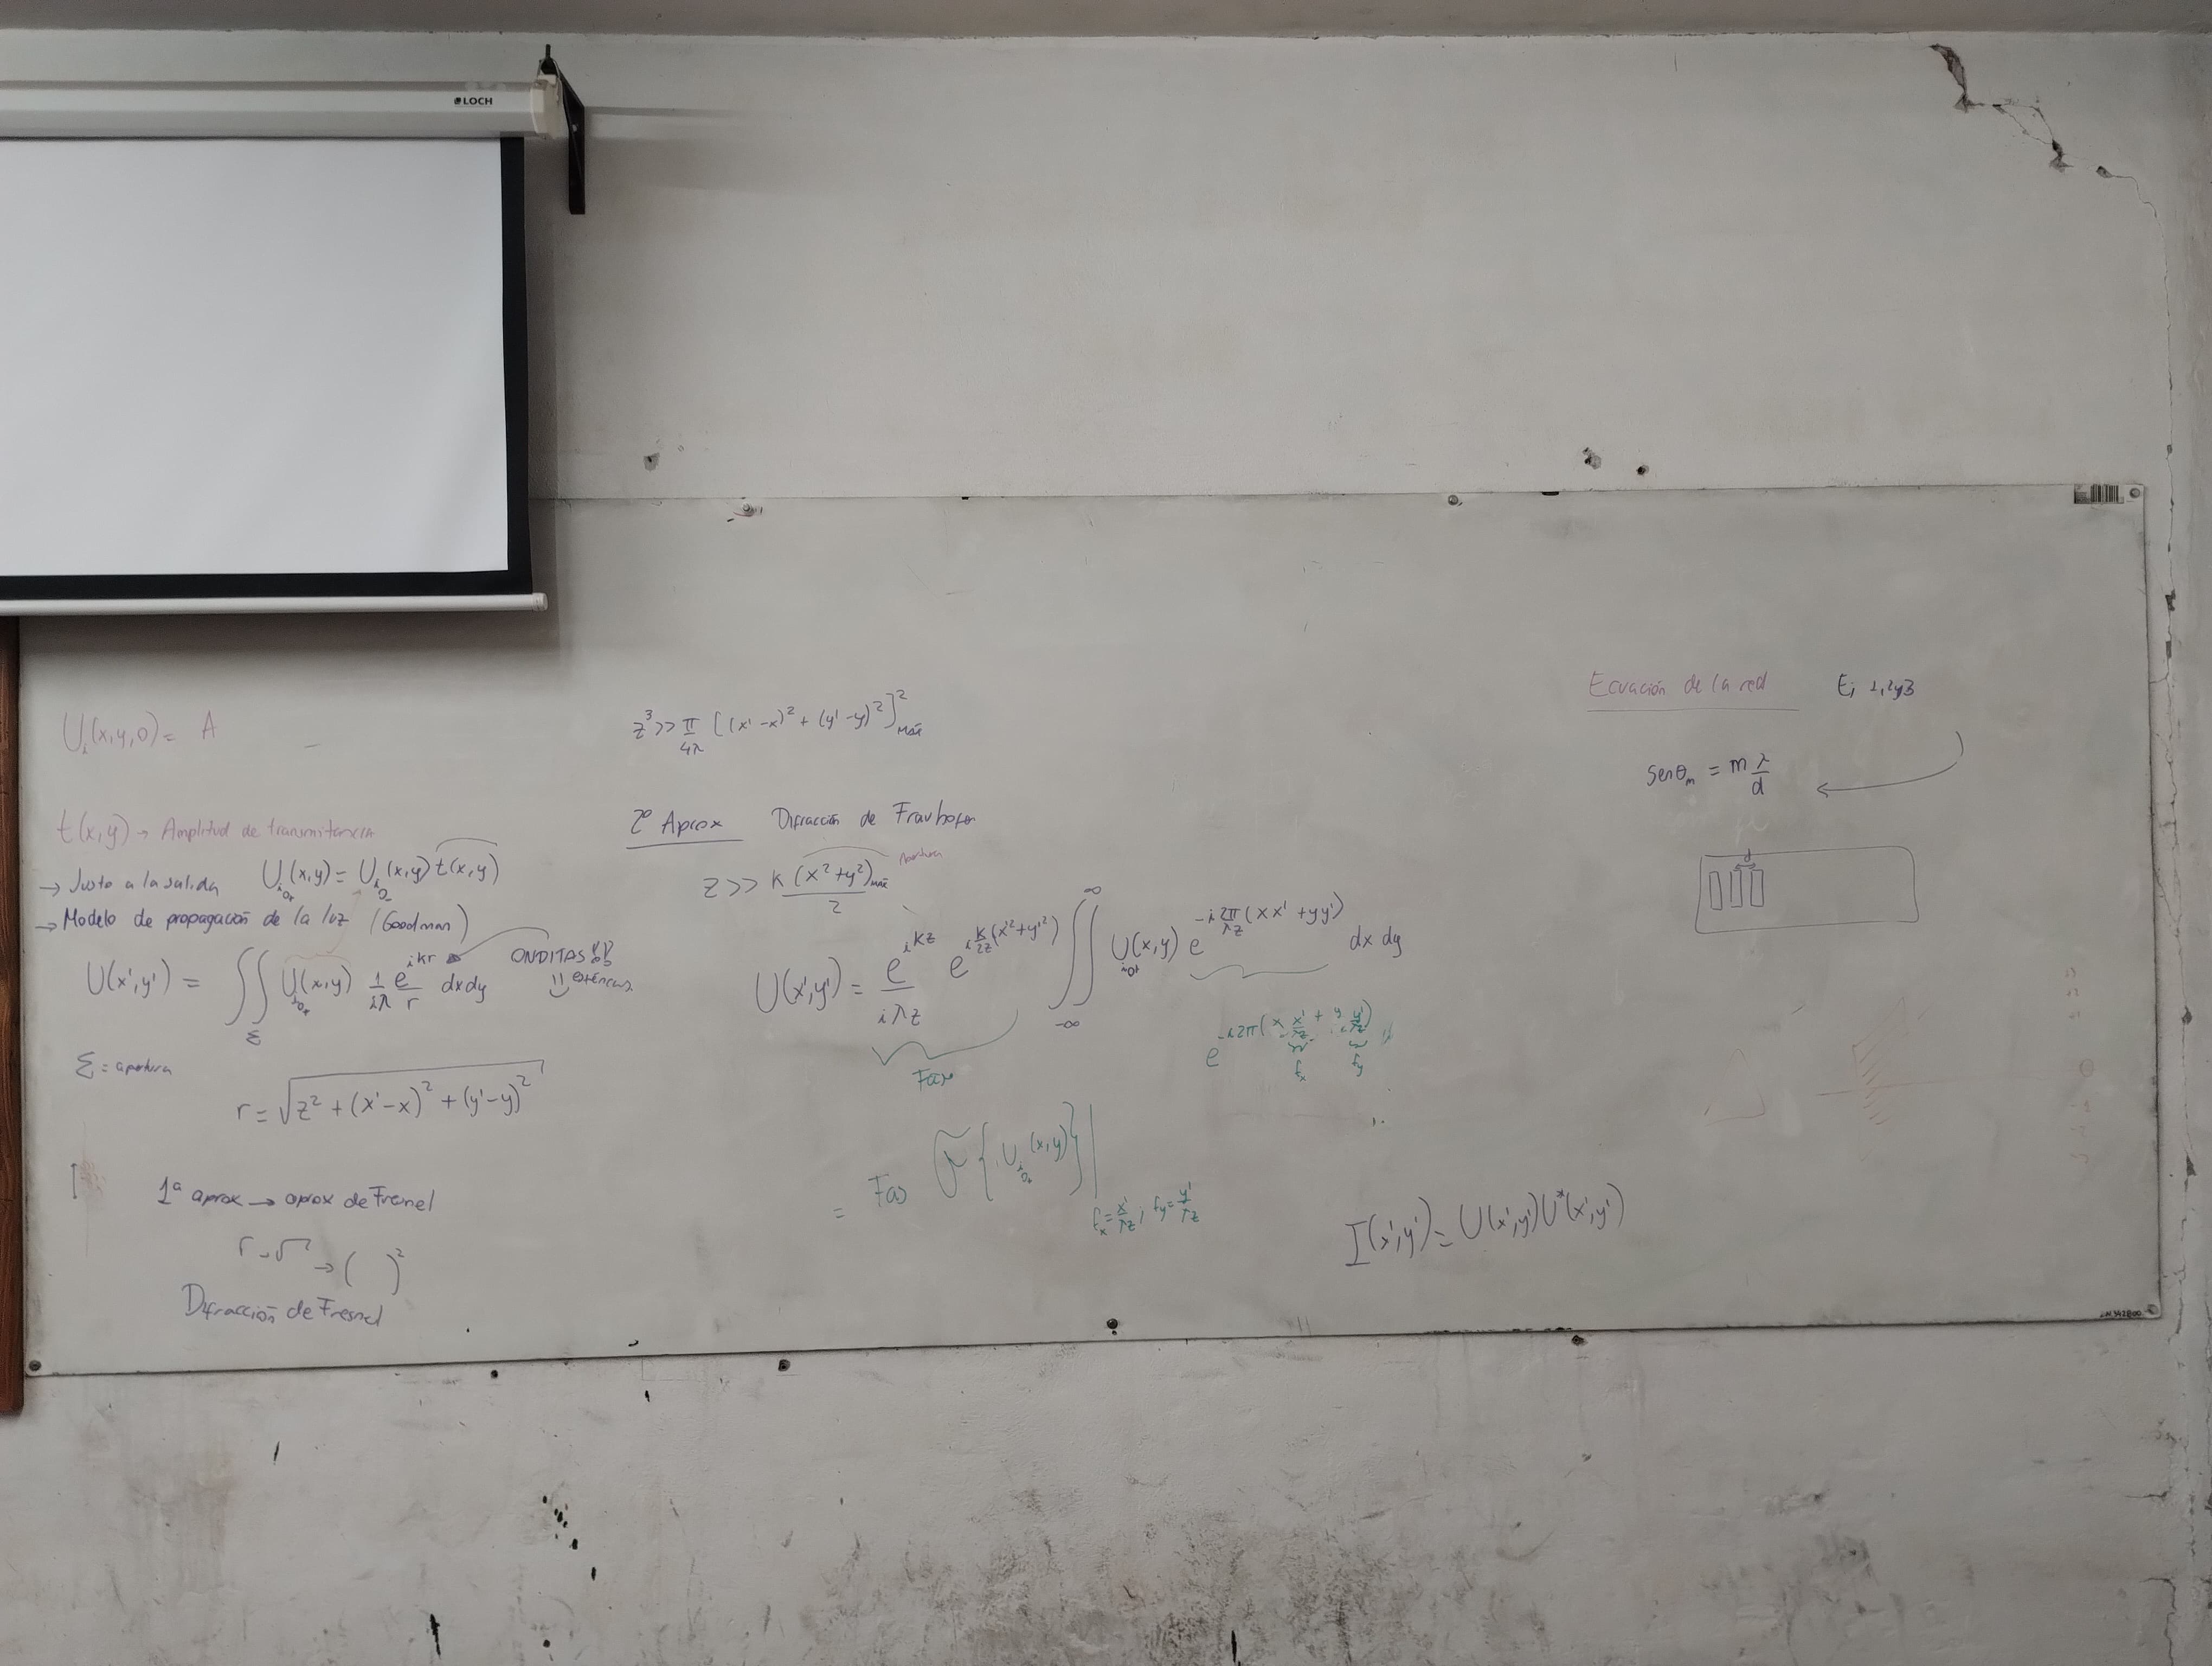 LOCH
U_i(x,y,0) = A
t(x,y) → Amplitud de transmitancia
→ Justo a la salida U_{i_{0+}}(x,y) = U_{i_{0-}}(x,y) t(x,y)
→ Modelo de propagación de la luz (Goodman)
U(x',y') = ∬_Σ U_{i_{0+}}(x,y) \frac{1}{iλ} \frac{e^{ikr}}{r} dxdy
ONDITAS
esféricas
Σ = apertura
r = √(z² + (x'-x)² + (y'-y)²)
1ª aprox → aprox de Fresnel
r - √ → ( )²
Difracción de Fresnel
z³ >> \frac{π}{4λ} [(x'-x)² + (y'-y)²]²_{máx}
2ª Aprox Difracción de Fraunhofer
z >> \frac{k(x²+y²)_{máx}}{2}
Apertura
U(x',y') = \frac{e^{ikz}}{iλz} e^{i\frac{k}{2z}(x'²+y'²)} ∬_{-∞}^{∞} U_{i_{0+}}(x,y) e^{-i\frac{2π}{λz}(xx'+yy')} dx dy
Fase
e^{-i2π(x\frac{x'}{λz} + y\frac{y'}{λz})}
f_x f_y
= Fas ℱ{U_{i_{0+}}(x,y)}|_{f_x=\frac{x'}{λz}; f_y=\frac{y'}{λz}}
Ecuación de la red Ej 1,2y3
senθ_m = m\frac{λ}{d}
d
I(x',y') = U(x',y')U*(x',y')